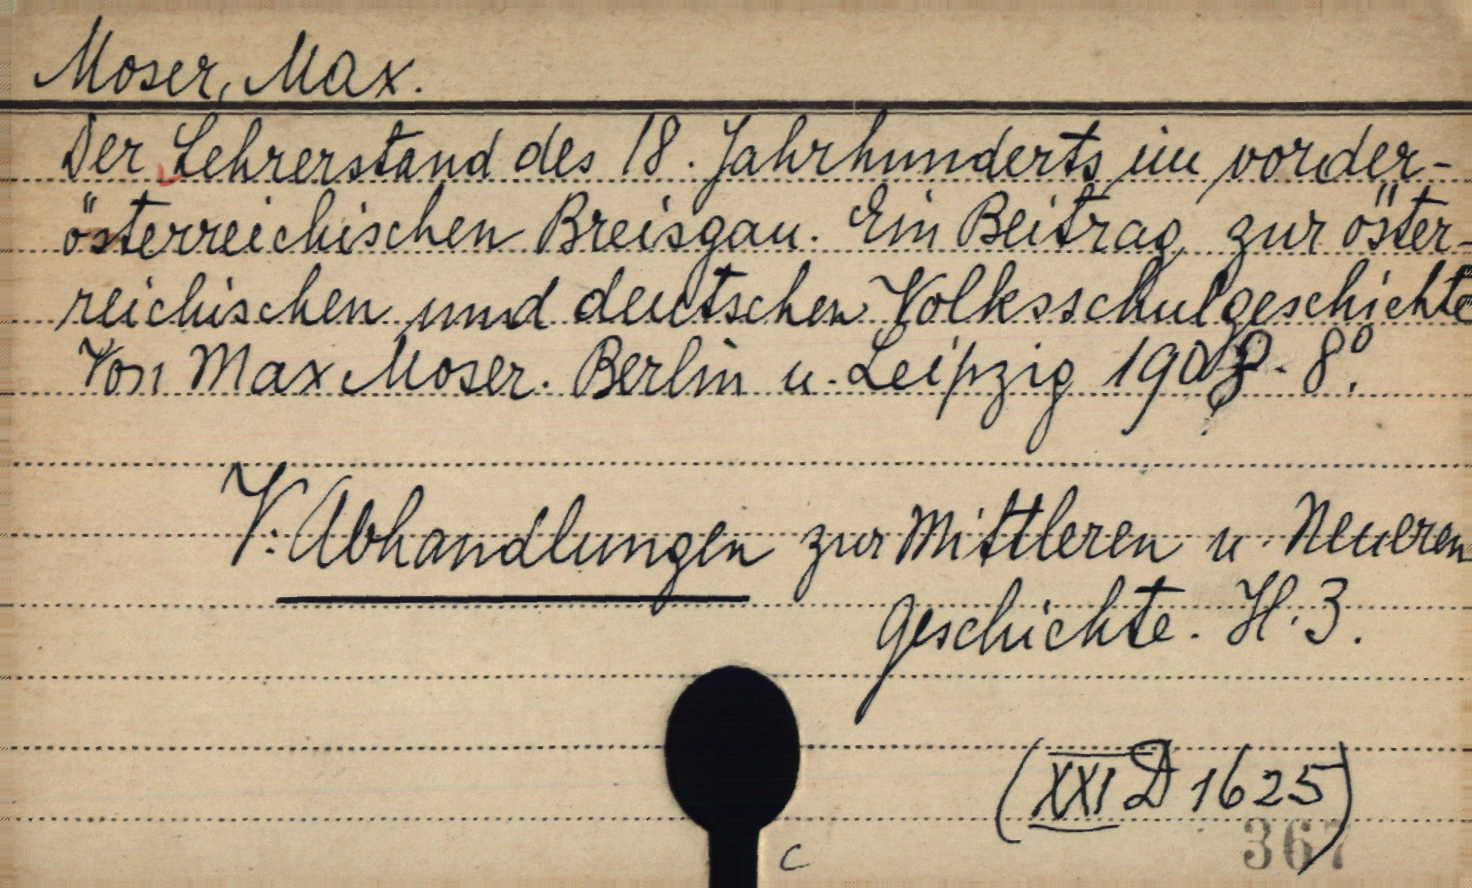 Moser, Max.
Der Lehrerstand des 18. Jahrhunderts im vorder-
österreichischen Breisgau. Ein Beitrag zur öster-
reichischen und deutschen Volksschulgeschichte
Von Max Moser. Berlin u. Leipzig 1908. 8°.
V: Abhandlungen zur Mittleren u. Neueren
Geschichte. H. 3.
(XXI D 1625)
367
c